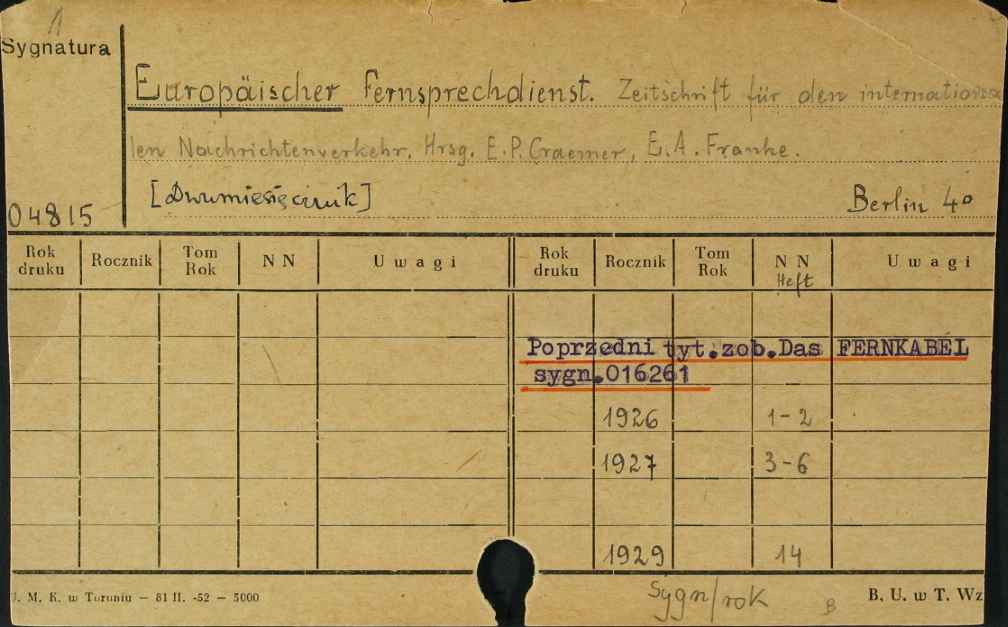 1
Sygnatura
Europäischer Fernsprechdienst. Zeitschrift für den internationa
len Nachrichtenverkehr. Hrsg. E.P. Craemer, E.A. Franke.
[Dwumiesięcznik] Berlin 4°
04815
Rok druku Rocznik Tom Rok N N U w a g i Rok druku Rocznik Tom Rok N N U w a g i
Heft
Poprzedni tyt.zob.Das FERNKABEL
sygn.016261
1926 1-2
1927 3-6
1929 14
Sygn/rok B
. M. K. w Toruniu — 81 II. -52 — 5000 B. U. w T. Wz